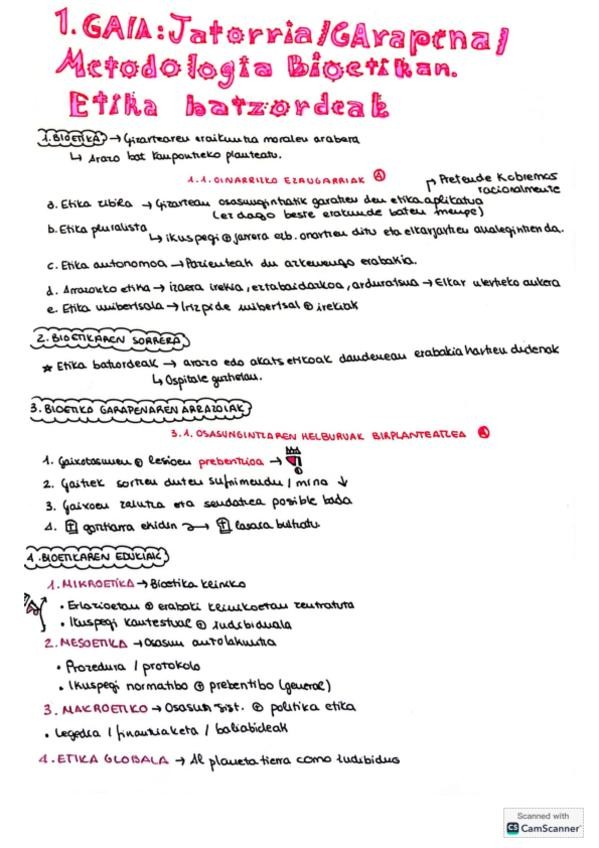 1. GAIA: Jatorria/GArapena/
Metodologia Bioetikan.
Etika batzordeak
1. BIOETIKA → Gizartearen eraikuntza moralen arabera
↳ Arazo bat konpontzeko planteatu.
1.1. OINARRIZKO EZAUGARRIAK
Pretende Kobremos
racionalmente
a. Etika zibila → Gizartean osasungintzatik garatzen den etika aplikatua
(ez dago beste erakunde baten menpe)
b. Etika pluralista
↳ ikuspegi ⊕ jarrera ezb. onartzen ditu eta elkarjartzen ahalegintzen da.
c. Etika autonomoa → Pazienteak du azkenengo erabakia.
d. Arrazoizko etika → izaera irekia, eztabaidazkoa, arduratsua → Elkar ulertzeko aukera
e. Etika unibertsala → Irizpide unibertsal ⊕ irekiak
2. BIOETIKAREN SORRERA
★ Etika batzordeak → arazo edo akats etikoak daudenean erabakia hartzen dutenak
↳ Ospitale guztietan.
3. BIOETIKA GARAPENAREN ARRAZOIAK
3.1. OSASUNGINTZAREN HELBURUAK BIRPLANTEATZEA
1. Gaixotasunen ⊕ lesioen prebentzioa →
2. Gaitzek sortzen duten sufrimendu / mina ↓
3. Gaixoen zaintza eta sendatzea posible bada
4. goiztiarra ekidin → lasaia bultzatu
4. BIOETIKAREN EDUKIAK
1. MIKROETIKA → Bioetika klinikoa
• Erlazioetan ⊕ erabaki klinikoetan zentratuta
• Ikuspegi kontextual ⊕ indibiduala
2. MESOETIKA → Osasun antolakuntza
• Prozedura / protokolo
• Ikuspegi normatibo ⊕ prebentibo (general)
3. MAKROETIKO → Osasun sist. ⊕ politika etika
• Legedia / finantziaketa / baliabideak
4. ETIKA GLOBALA → Al planeta tierra como indibiduo
Scanned with
CS CamScanner